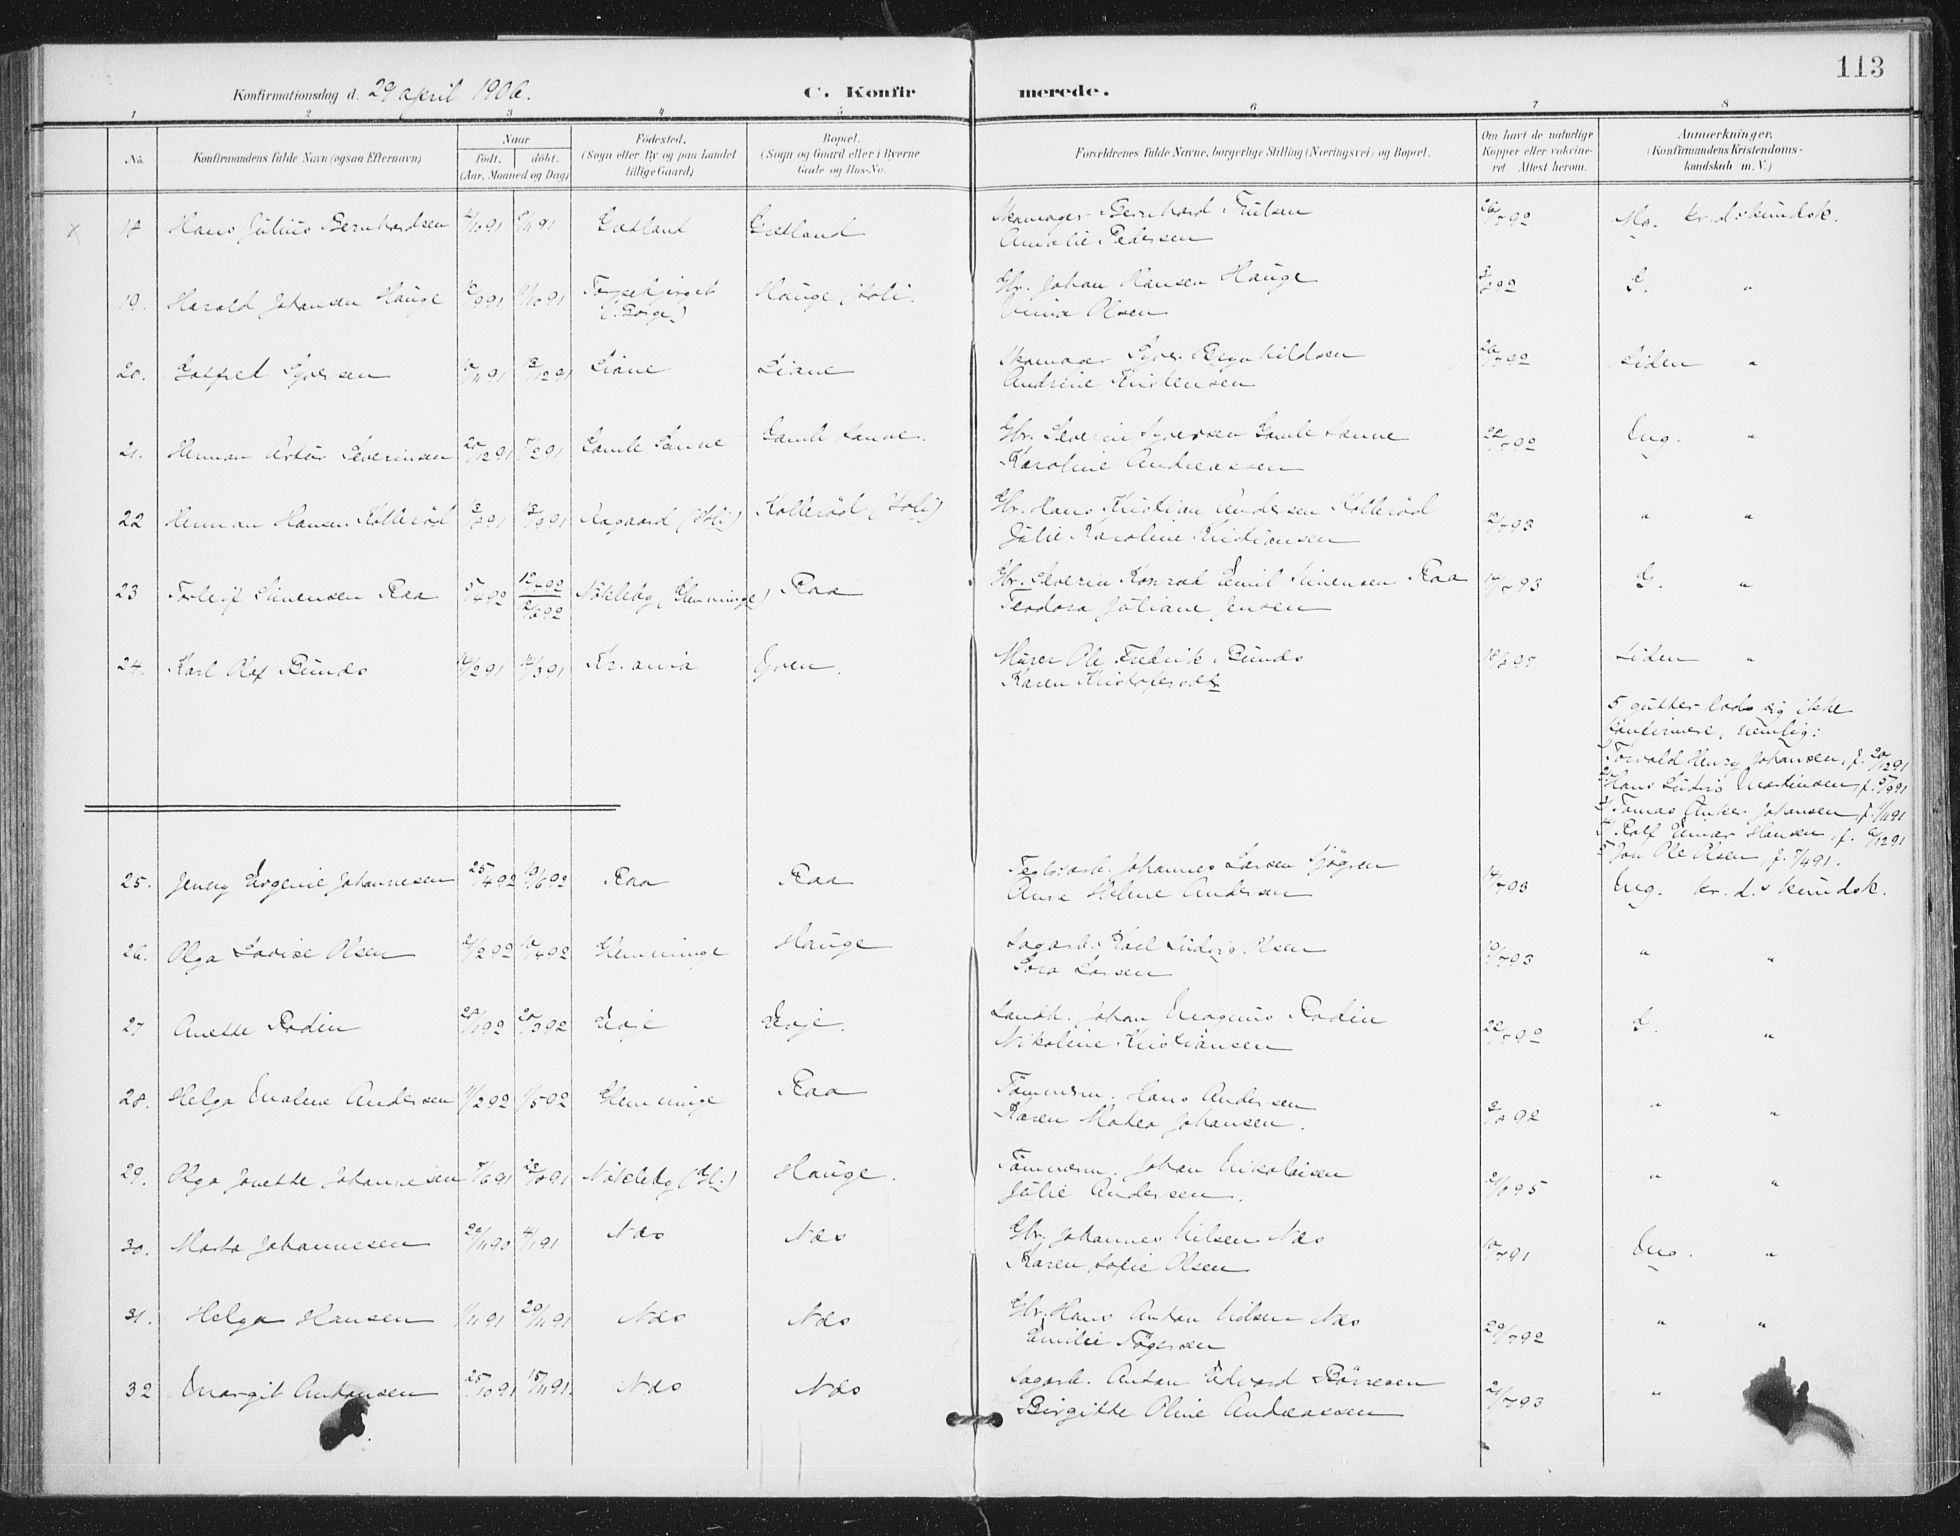 113
Konfirmationsdag d. 29 april 1906. C. Konfirmerede.
1 2 3 4 5 6 7 8
No. Konfirmandens fulde Navn (ogsaa Efternavn) Naar født. døbt. (Aar, Maaned og Dag)
Fødested. (Sogn eller By og paa Landet tillige Gaard)
Bopæl. (Sogn og Gaard eller i Byerne Gade og Hus-No.
Forældrenes fulde Navne, borgerlige Stilling (Næringsvei) og Bopæl.
Om havt de naturlige Kopper eller vakcineret. Attest herom.
Anmærkninger. (Konfirmandens Kristendomskundskab m. V.)
x 18 Hans Julius Bernhardsen Gretland Gretland Skomager Bernhard Amalie Pedersen 26/7 92 Mg. kr.d.s kundsk.
19. Harald Johansen Hauge Hauge Gbr. Johan Hansen Hauge Olsen G. "
20. Syversen 3/12 91 Liane Liane Skomager Syver Andrine Kristensen 26/7 92 Liden "
21. Herman Artur Severinsen Gamle Sanne Gamle Sanne. Gbr. Severin Syversen Gamle Sanne Karoline Andreassen 22/7 92 Mg. "
22 Herman Hansen Kollerød 13/9 91 Aagaard Kollerød Gbr. Hans Kristian Andersen Kollerød Julie Karoline Kristiansen 12/7 93 " "
23 Torleif Simensen Raa 5/4 92 12/6 92 Nökleby (Glemminge) Raa Gbr. Severin Konrad Emil Simensen Raa Teodora Juliane Jensen 14/7 93 G. "
24. Karl Olaf Bunds 14/2 91 Kr.ania Murer Ole Fredrik Bunds Karen Liden "
5 gutter lod sig ikke
konfirmere, nemlig:
1) Torvald Henry Johansen, f. 20/12 91
2) Hans Ludvig Martinsen, f. 5/9 91
3) Tomas Anker Johansen, f.
4) Rolf Einar Hansen, f. 6/12 91
5) Jon Ole Olsen, f. 7/4 91.
25. Jenny Evgenie Johannesen 25/4 92 19/6 92 Raa Raa Johannes Larsen Sjögren Anne Helene Andersen 14/7 93 Mg. kr.d.s kundsk.
26. Olga Lovise Olsen Glemminge Hauge Sagarb. Karl Ludvig Olsen Larsen 19/7 93 " "
27 Anette Rodin 20/3 92 Evje Evje. Landh. Johan Magnus Rodin Nikoline Kristiansen 22/7 92 G. "
28. Helga Malene Andersen 11/2 92 1/5 92 Glemminge Raa Tömmerm. Hans Andersen Karen Matea Johansen. " "
29. Olga Jonette Johannesen 23/8 91 Nökleby (Gl.) Hauge. Tömmerm. Johan Nikolaisen Julie Andersen. " "
30. Marta Johannesen 4/1 91 Næs Næs Gbr. Johannes Nilsen Næs Karen Sofie Olsen Mg. "
31. Helga Hansen 1/11 91 29/11 91 Næs Næs Gbr. Hans Anton Nilsen Næs Emilie 29/7 92 " "
32 Margit Antonsen 25/10 91 15/11 91 Næs Næs Sagarb. Anton Edvard Börresen Birgitte Oline Andreassen 21/7 93 "